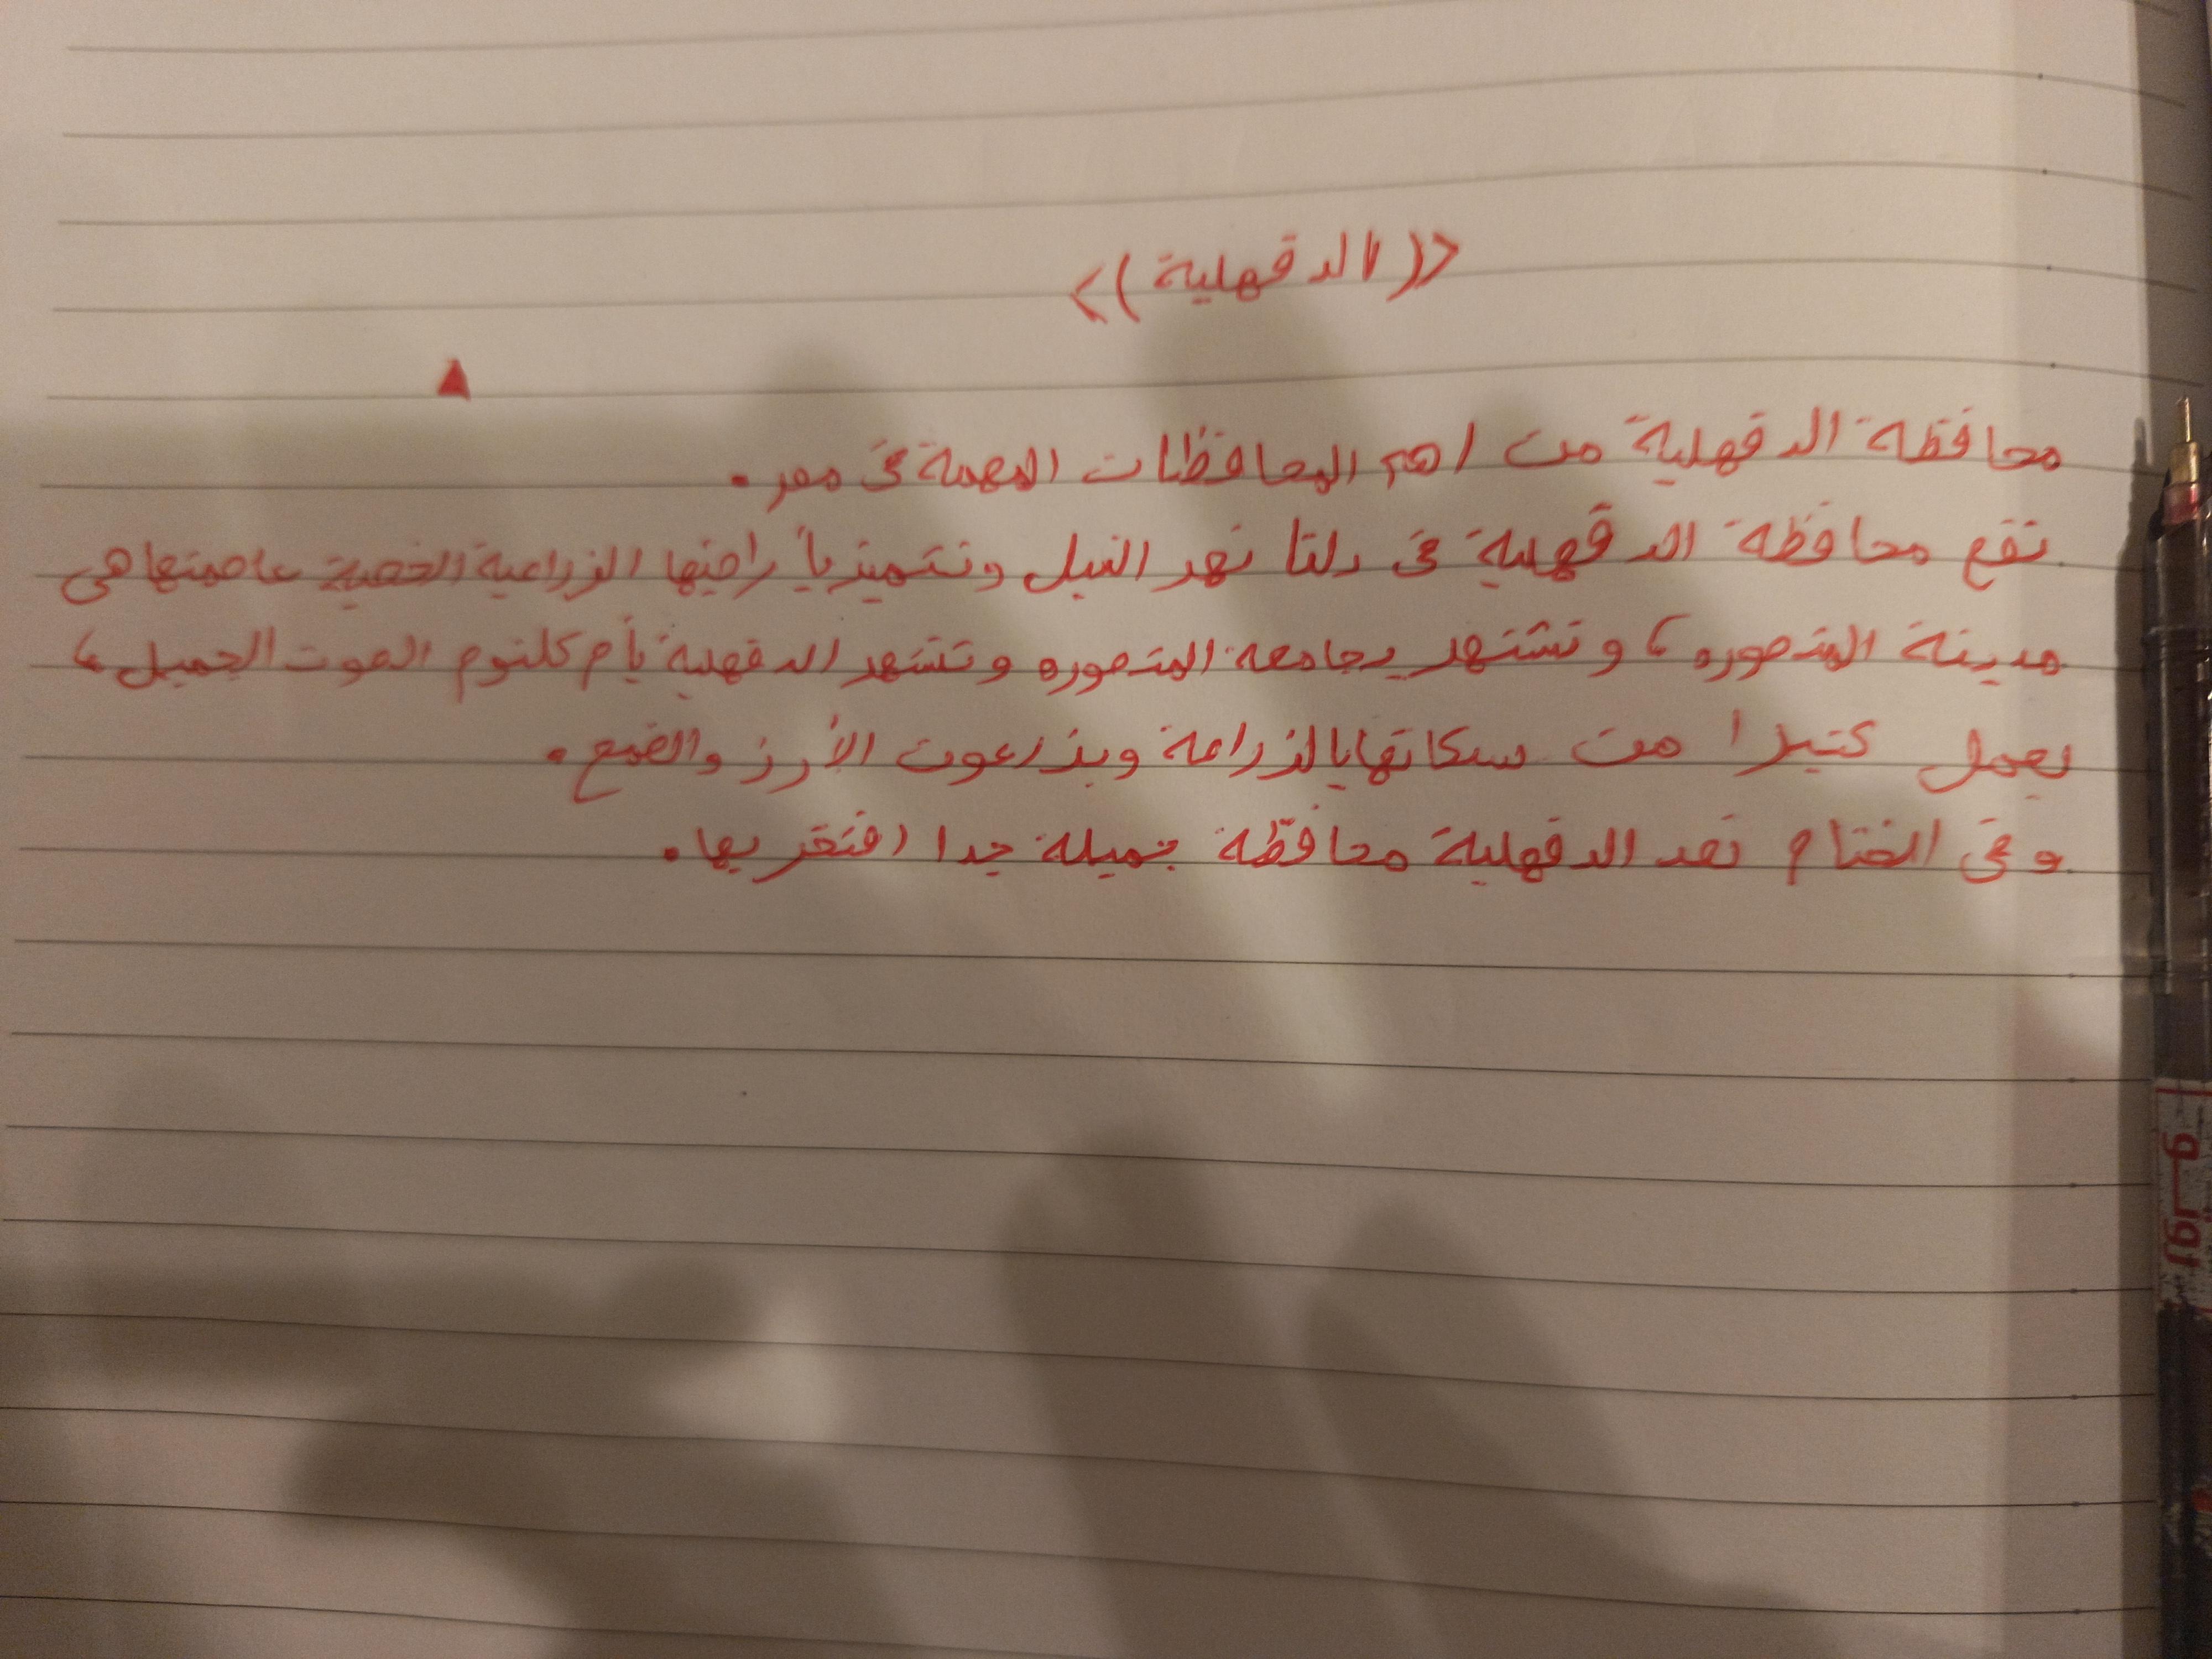 <((الدقهلية)>
محافظة الدقهلية من اهم المحافظات المهمة فى مصر.
تقع محافظة الدقهلية فى دلتا نهر النيل وتتميز بأراضيها الزراعية الخصبة عاصمتها هى
مدينة المنصوره، وتشتهر بجامعه المنصوره وتشتهر الدقهلية بأم كلثوم الصوت الجميل،
يعمل كثيرا من سكانها بالزراعة ويزرعون الأرز والقمح.
وفى الختام تعد الدقهلية محافظة جميلة جدا افتخر بها.
روتو